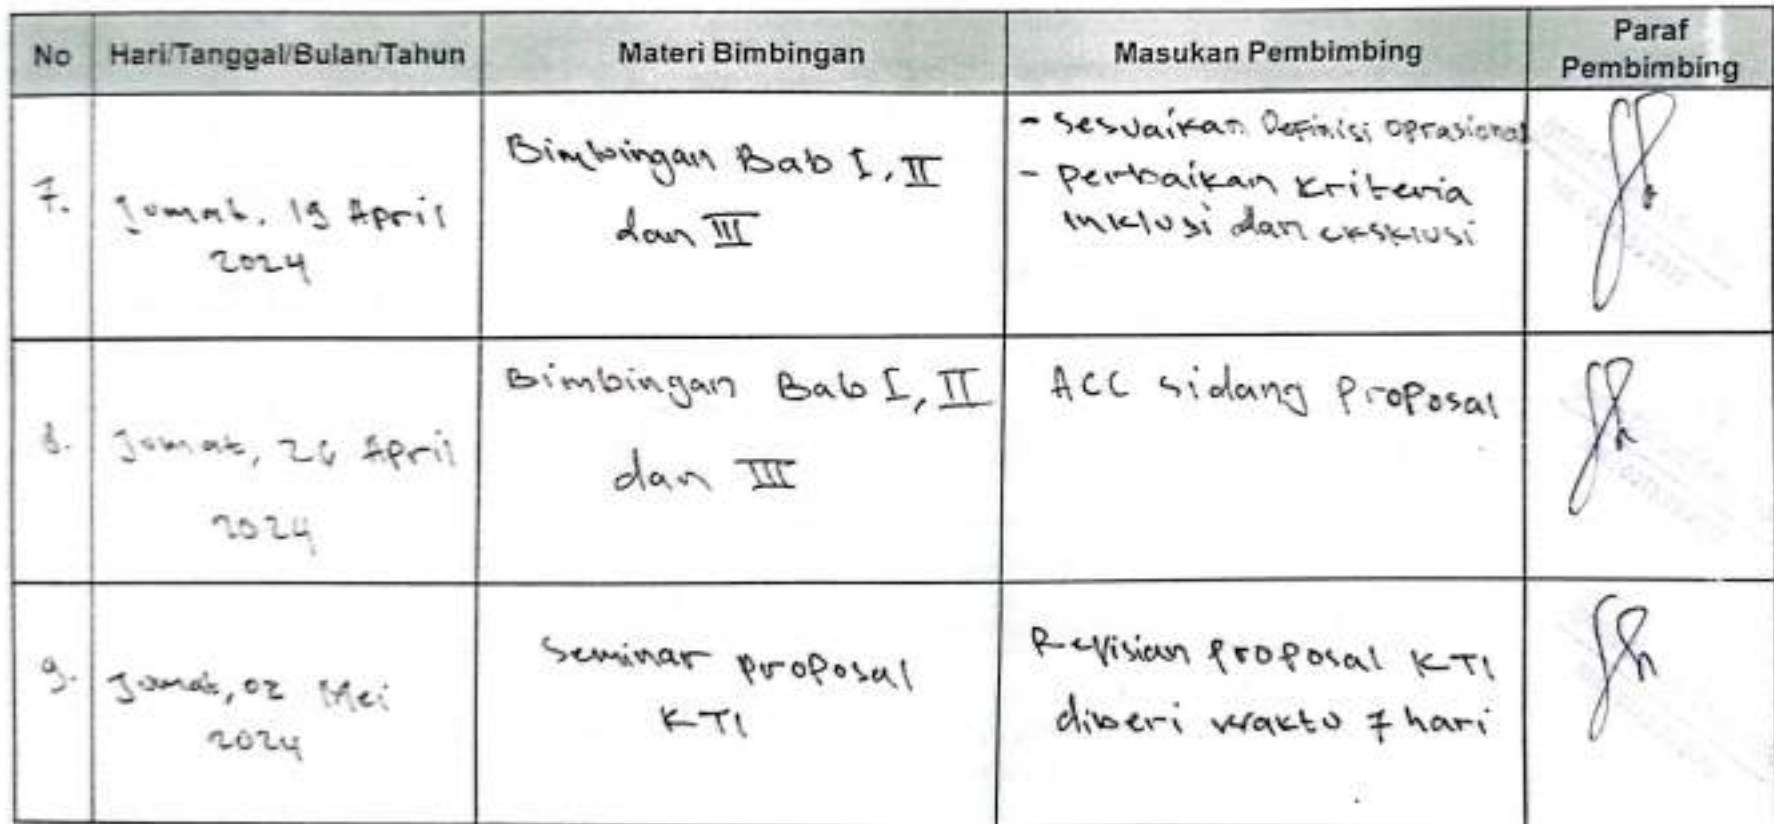 No Hari/Tanggal/Bulan/Tahun Materi Bimbingan Masukan Pembimbing Paraf Pembimbing
7.
Jumat, 19 April
2024
Bimbingan Bab I, II
dan III
- Sesuaikan Definisi oprasional
- perbaikan kriteria
inklusi dan eksklusi
8.
Jumat, 26 April
2024
Bimbingan Bab I, II
dan III
ACC sidang proposal
9.
Jumat, 02 Mei
2024
Seminar proposal
KTI
Revisian proposal KTI
diberi waktu 7 hari